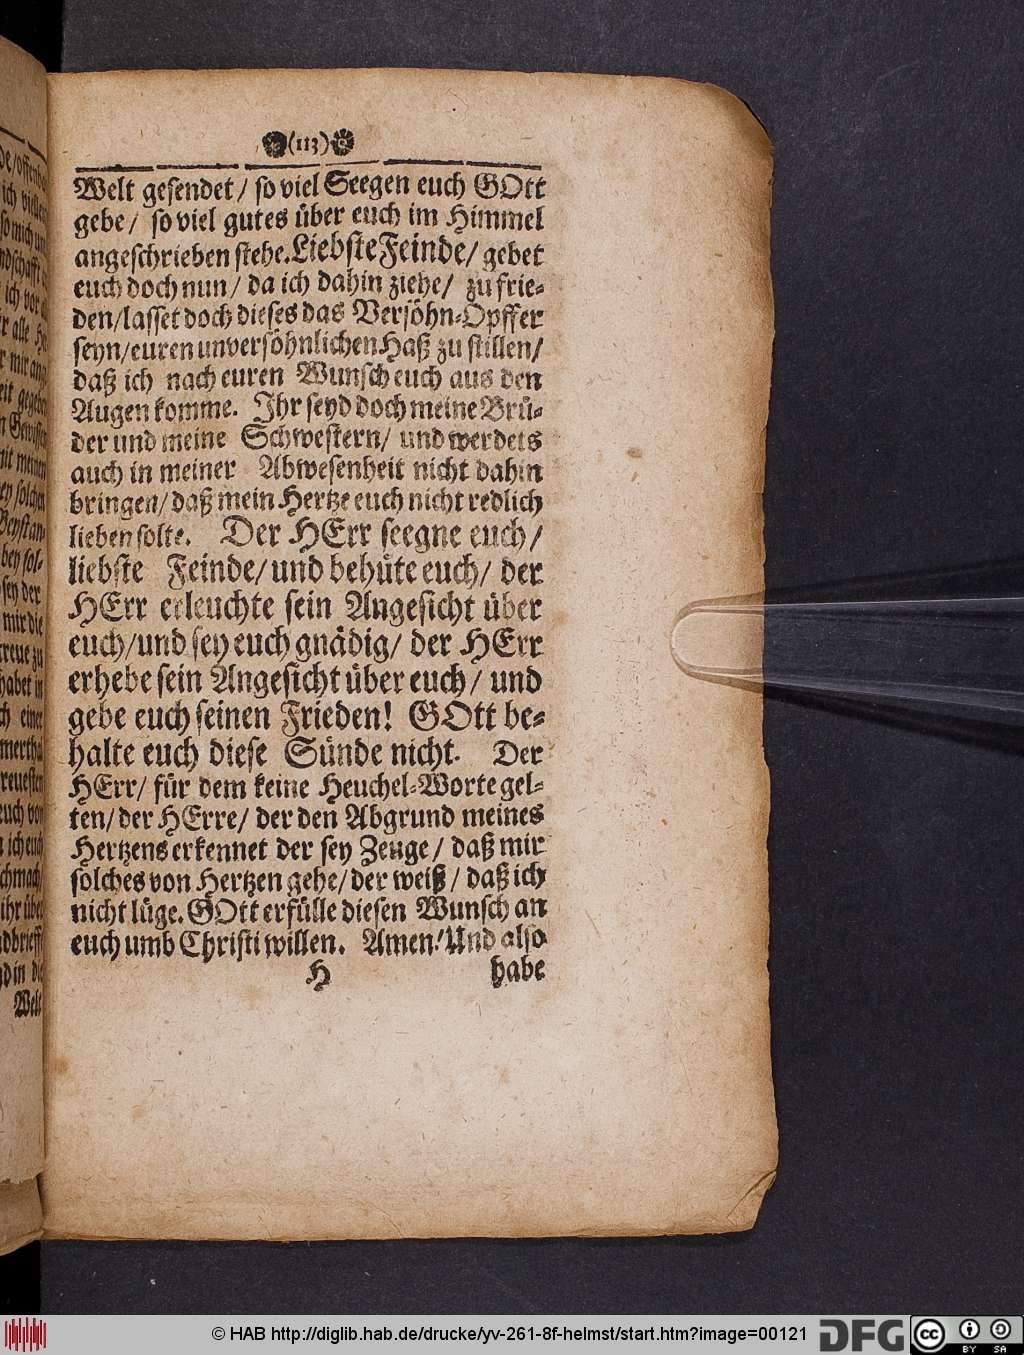 (113)
Welt gesendet/ so viel Seegen euch GOtt
gebe/ so viel gutes über euch im Himmel
angeschrieben stehe. Liebste Feinde/ gebet
euch doch nun/ da ich dahin ziehe/ zu frie-
den/ lasset doch dieses das Versöhn-Opffer
seyn/ euren unversöhnlichen Haß zu stillen/
daß ich nach euren Wunsch euch aus den
Augen komme. Ihr seyd doch meine Brü-
der und meine Schwestern/ und werdets
auch in meiner Abwesenheit nicht dahin
bringen/ daß mein Hertze euch nicht redlich
lieben solte. Der HErr seegne euch/
liebste Feinde/ und behüte euch/ der
HErr erleuchte sein Angesicht über
euch/ und sey euch gnädig/ der HErr
erhebe sein Angesicht über euch/ und
gebe euch seinen Frieden! GOtt be-
halte euch diese Sünde nicht. Der
HErr/ für dem keine Heuchel-Worte gel-
ten/ der HErre/ der den Abgrund meines
Hertzens erkennet der sey Zeuge/ daß mir
solches von Hertzen gehe/ der weiß/ daß ich
nicht lüge. GOtt erfülle diesen Wunsch an
euch umb Christi willen. Amen! Und also
H habe
© HAB http://diglib.hab.de/drucke/yv-261-8f-helmst/start.htm?image=00121
DFG
cc BY SA